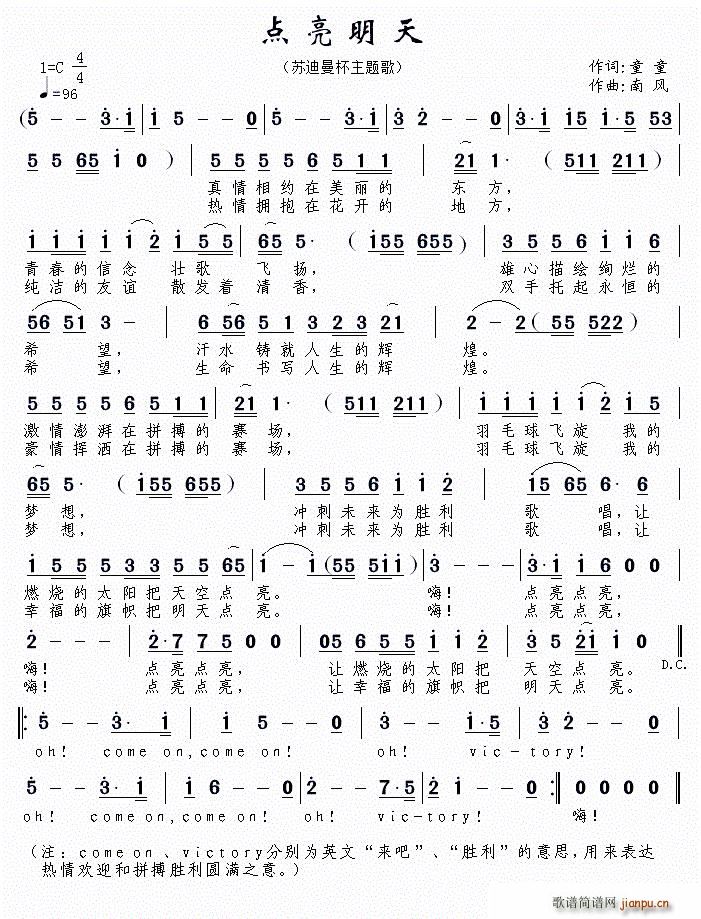 点亮明天
1=C 4/4
（苏迪曼杯主题歌）
作词:童 童
♩=96
作曲:南 风
(5 - - 3·1 | 1 5 - - 0 | 5 - - 3·1 | 3 2 - - 0 | 3·1 15 1·5 53
5 5 65 1 0 ) | 5 5 5 5 6 5 1 1 | 21 1· (511 211) |
真情相约在美丽的 东 方，
热情拥抱在花开的 地 方，
1 1 1 1 1 2 1 5 5 | 65 5· (155 655) | 3 5 5 6 1 1 6 |
青春的信念 壮歌 飞 扬， 雄心描绘绚烂的
纯洁的友谊 散发着 清 香， 双手托起永恒的
56 51 3 - | 6 56 5 1 3 2 3 21 | 2 - 2 (55 522) |
希 望， 汗水 铸就人生的辉 煌。
希 望， 生命 书写人生的辉 煌。
5 5 5 5 6 5 1 1 | 21 1· (511 211) | 1 1 1 1 1 2 1 5
激情澎湃在拼搏的 赛 场， 羽毛球飞旋 我的
豪情挥洒在拼搏的 赛 场， 羽毛球飞旋 我的
65 5· (155 655) | 3 5 5 6 1 1 2 | 15 65 6· 5 |
梦 想， 冲刺未来为胜利 歌 唱，让
梦 想， 冲刺未来为胜利 歌 唱，让
1 5 5 5 3 5 5 65 | 1 - 1 (55 511) | 3 - - 3·1 | 1 6 0 0 |
燃烧的太阳把天空点 亮。 嗨！ 点亮点亮，
幸福的旗帜把明天点 亮。 嗨！ 点亮点亮，
2 - - 2·7 | 7 5 0 0 | 05 6 5 5 1 1 2 | 3 5 21 1 0 ‖
嗨！ 点亮点亮， 让燃烧的太阳把 天空点亮。 D.C.
嗨！ 点亮点亮， 让幸福的旗帜把 明天点亮。
‖: 5 - - 3·1 | 1 5 - 0 | 1 - - 1·5 | 3 2 - - 0
oh! come on,come on! oh! vic-tory!
5 - - 3·1 | 1 6 - - 0 | 2 - - 7·5 | 2 1 - - 0 :‖ 0 0 0 0 ‖
oh! come on,come on! oh! vic-tory! 嗨！
（注：come on、victory分别为英文“来吧”、“胜利”的意思,用来表达
热情欢迎和拼搏胜利圆满之意。）
歌谱简谱网
jianpu.cn